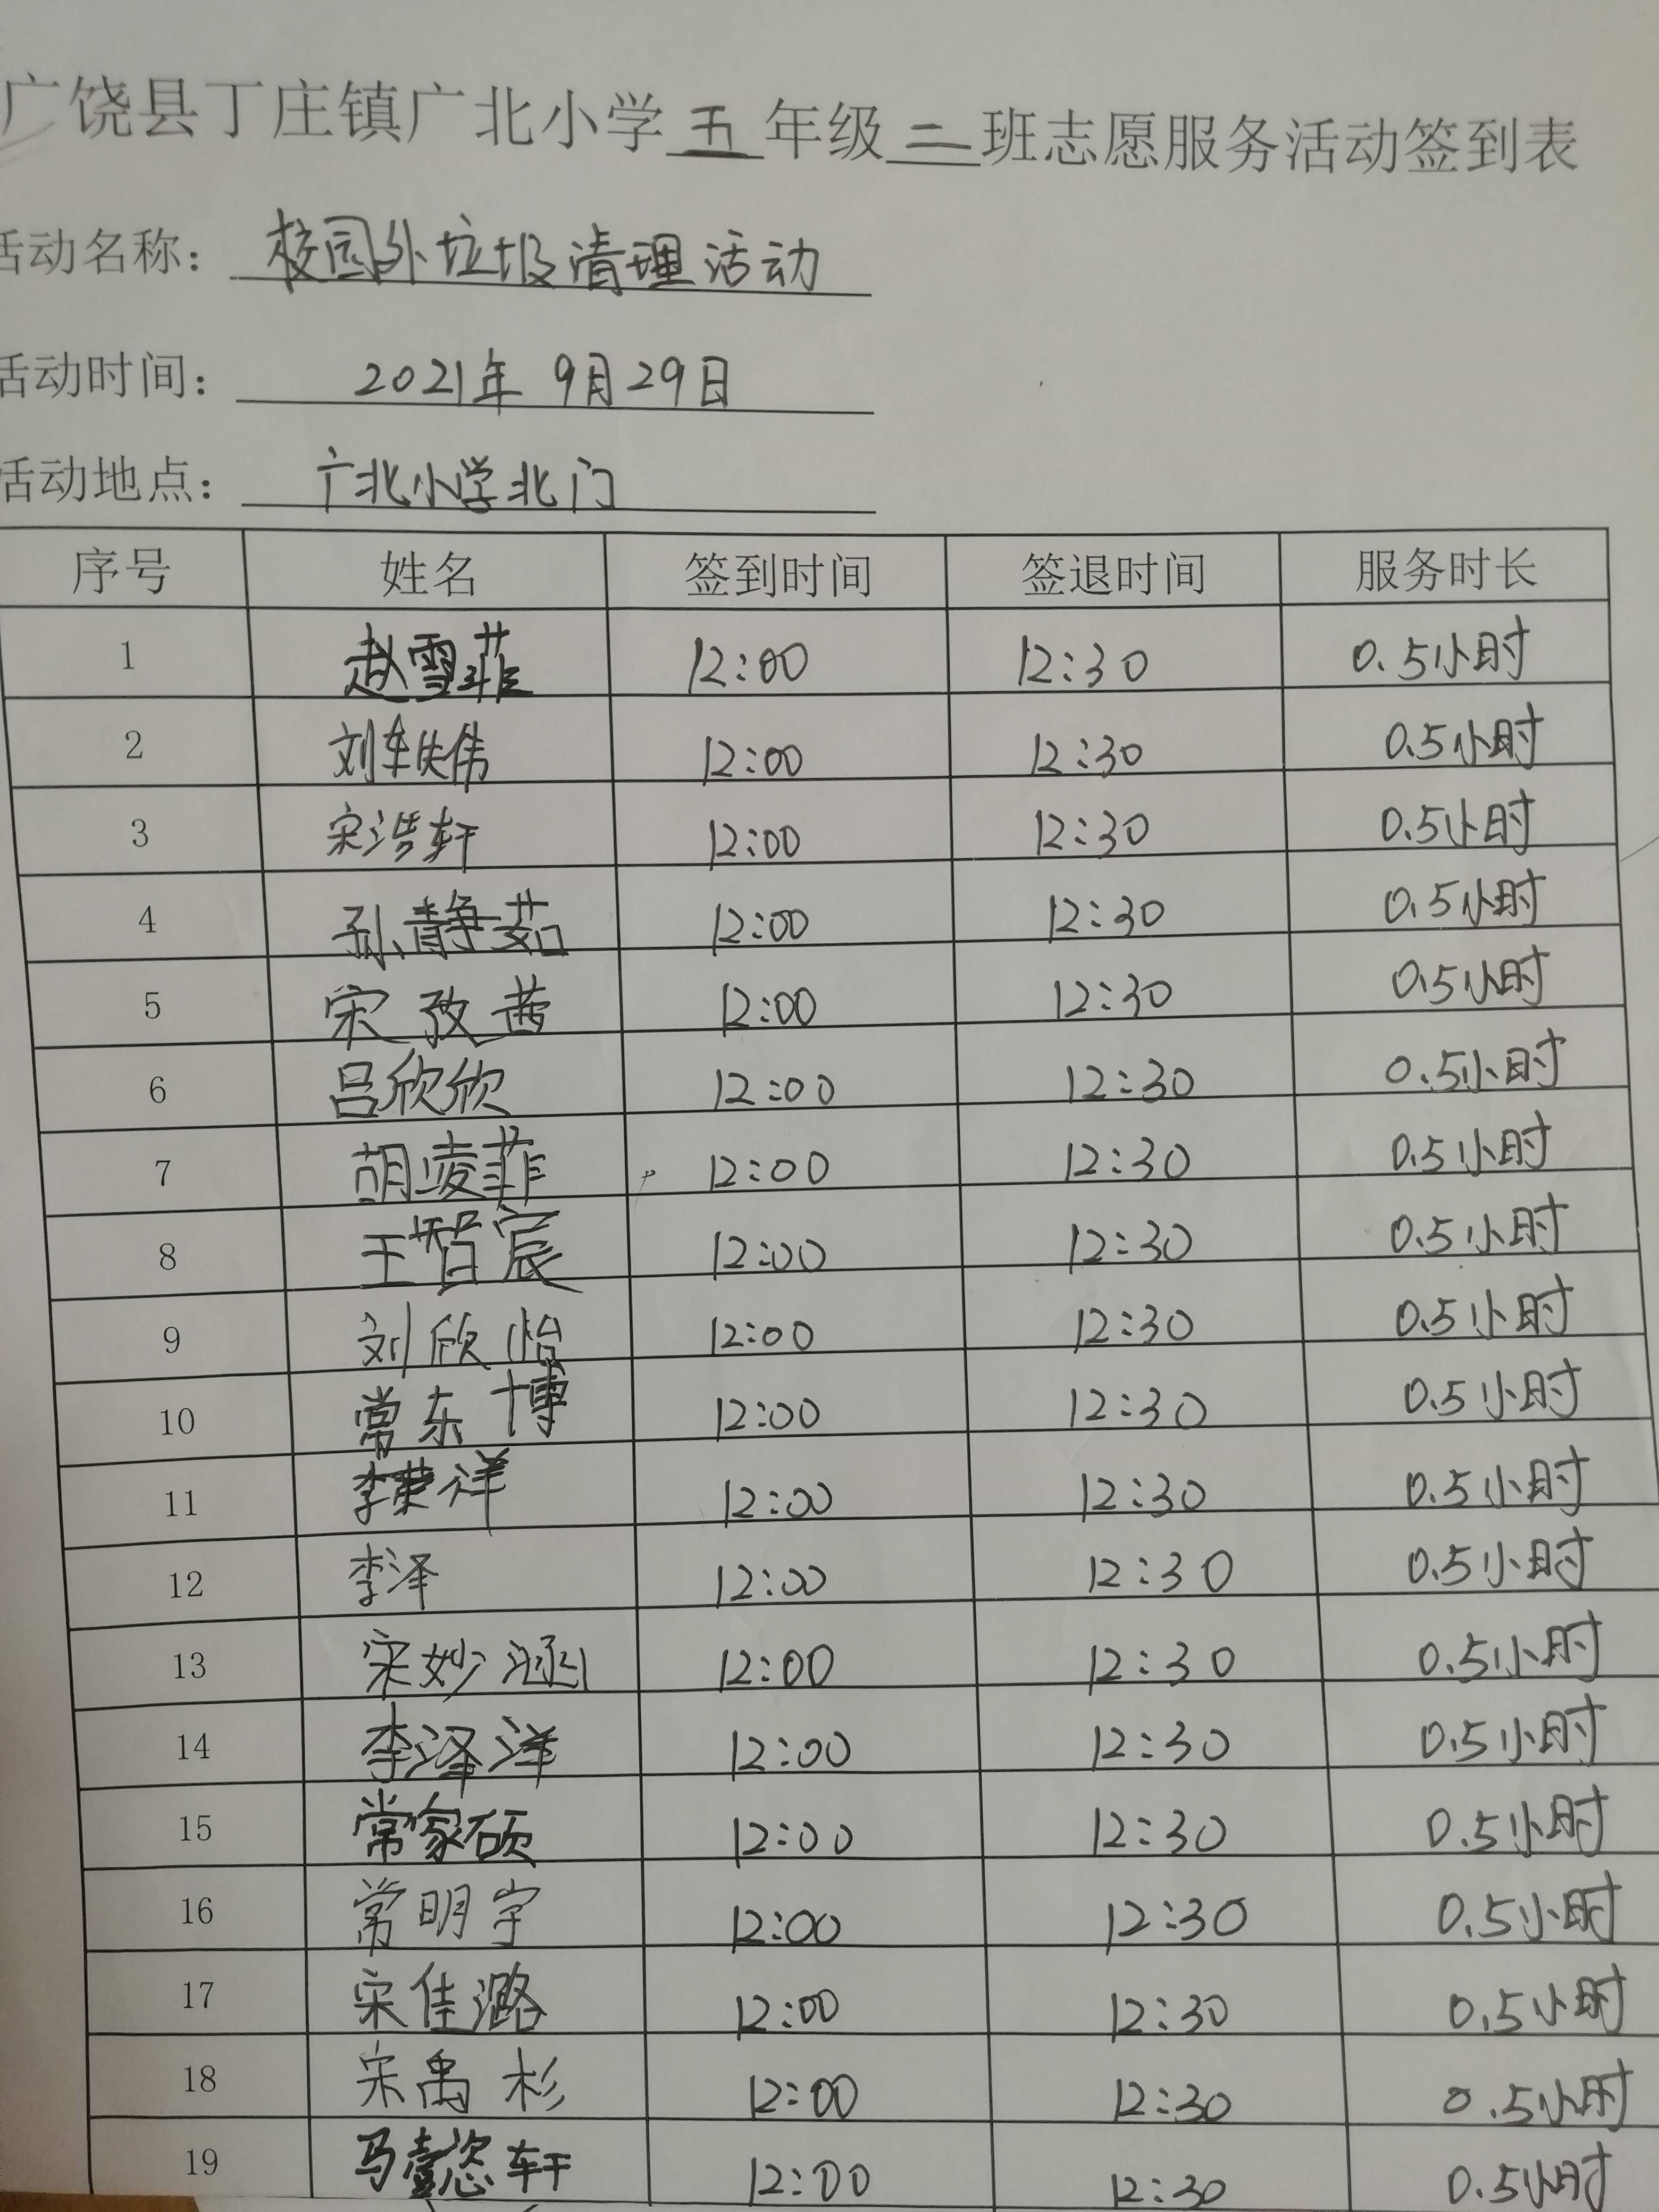 广饶县丁庄镇广北小学五年级二班志愿服务活动签到表
活动名称：校园外垃圾清理活动
活动时间：2021年 9月29日
活动地点：广北小学北门
序号 姓名 签到时间 签退时间 服务时长
1 赵雪菲 12:00 12:30 0.5小时
2 刘轶伟 12:00 12:30 0.5小时
3 宋浩轩 12:00 12:30 0.5小时
4 孙静茹 12:00 12:30 0.5小时
5 宋孜茜 12:00 12:30 0.5小时
6 吕欣欣 12:00 12:30 0.5小时
7 胡凌菲 12:00 12:30 0.5小时
8 王智宸 12:00 12:30 0.5小时
9 刘欣怡 12:00 12:30 0.5小时
10 常东博 12:00 12:30 0.5小时
11 李荣祥 12:00 12:30 0.5小时
12 李泽 12:00 12:30 0.5小时
13 宋妙涵 12:00 12:30 0.5小时
14 李泽洋 12:00 12:30 0.5小时
15 常家硕 12:00 12:30 0.5小时
16 常明宇 12:00 12:30 0.5小时
17 宋佳潞 12:00 12:30 0.5小时
18 宋禹杉 12:00 12:30 0.5小时
19 12:00 12:30 0.5小时